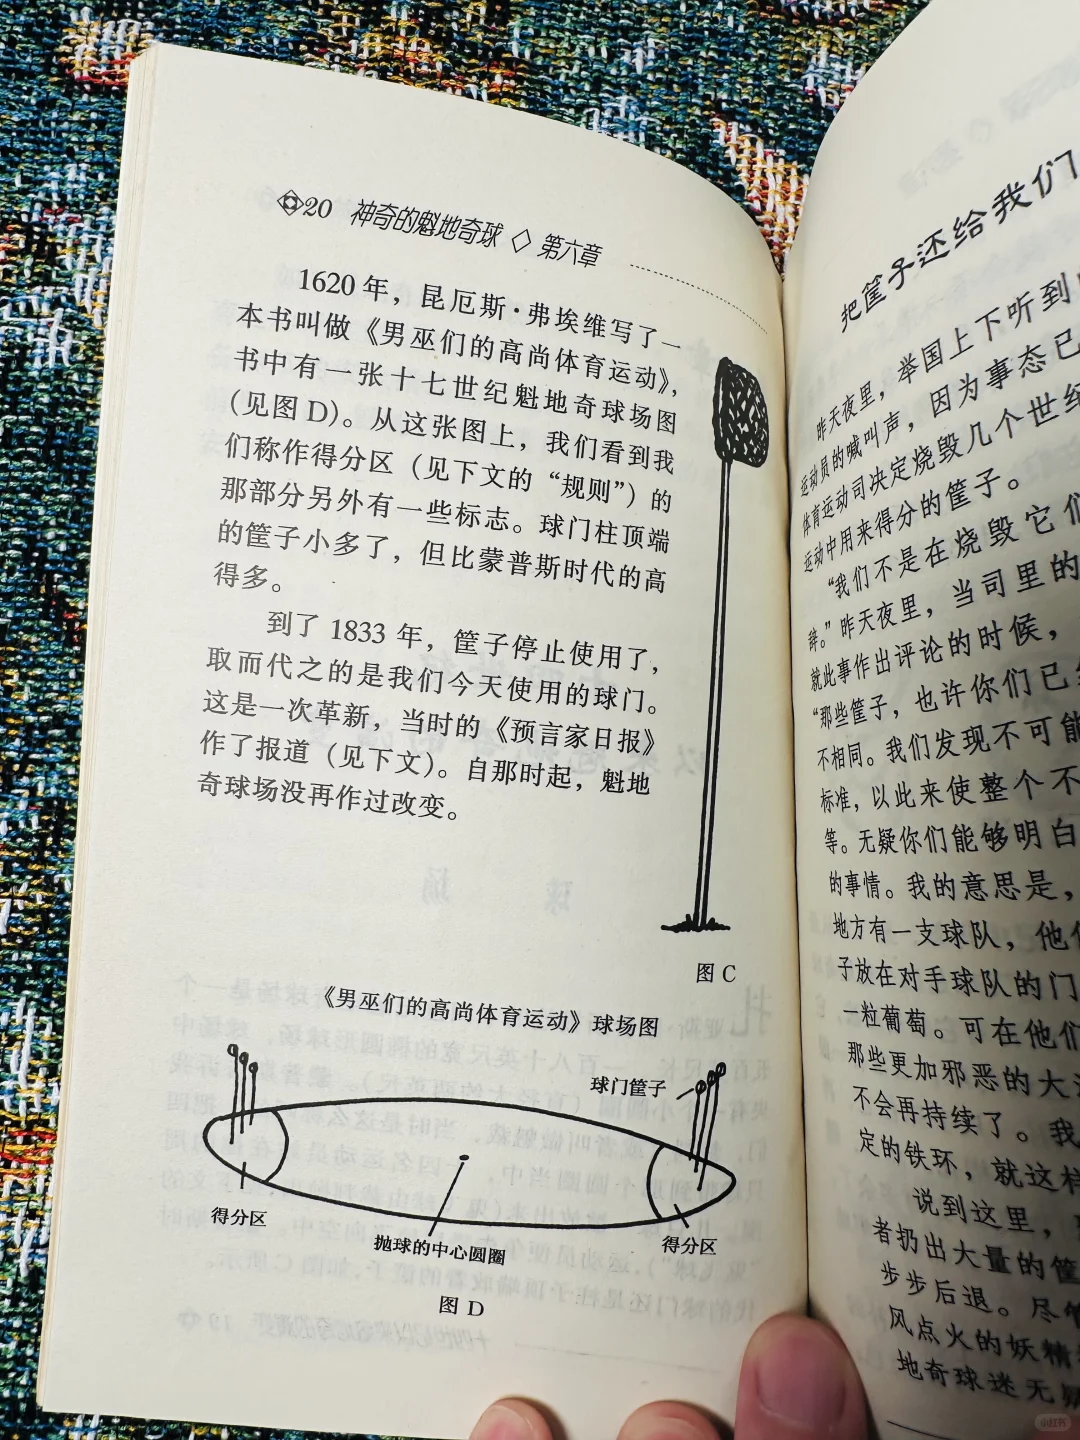 20 神奇的魁地奇球 ◇ 第六章
1620 年，昆厄斯·弗埃维写了一
本书叫做《男巫们的高尚体育运动》，
书中有一张十七世纪魁地奇球场图
（见图 D）。从这张图上，我们看到我
们称作得分区（见下文的“规则”）的
那部分另外有一些标志。球门柱顶端
的筐子小多了，但比蒙普斯时代的高
得多。
到了 1833 年，筐子停止使用了，
取而代之的是我们今天使用的球门。
这是一次革新，当时的《预言家日报》
作了报道（见下文）。自那时起，魁地
奇球场没再作过改变。
图 C
《男巫们的高尚体育运动》球场图
球门筐子
得分区
抛球的中心圆圈
得分区
图 D
把筐子还给我们
昨天夜里，举国上下听到
运动员的喊叫声，因为事态已
体育运动司决定烧毁几个世纪
运动中用来得分的筐子。
“我们不是在烧毁它们
辞。”昨天夜里，当司里的
就此事作出评论的时候，
“那些筐子，也许你们已
不相同。我们发现不可能
标准，以此来使整个不
等。无疑你们能够明白
的事情。我的意思是，
地方有一支球队，他们
子放在对手球队的门
一粒葡萄。可在他们
那些更加邪恶的大
不会再持续了。我
定的铁环，就这样
说到这里，
者扔出大量的筐
步步后退。尽管
风点火的妖精
地奇球迷无疑
小红书